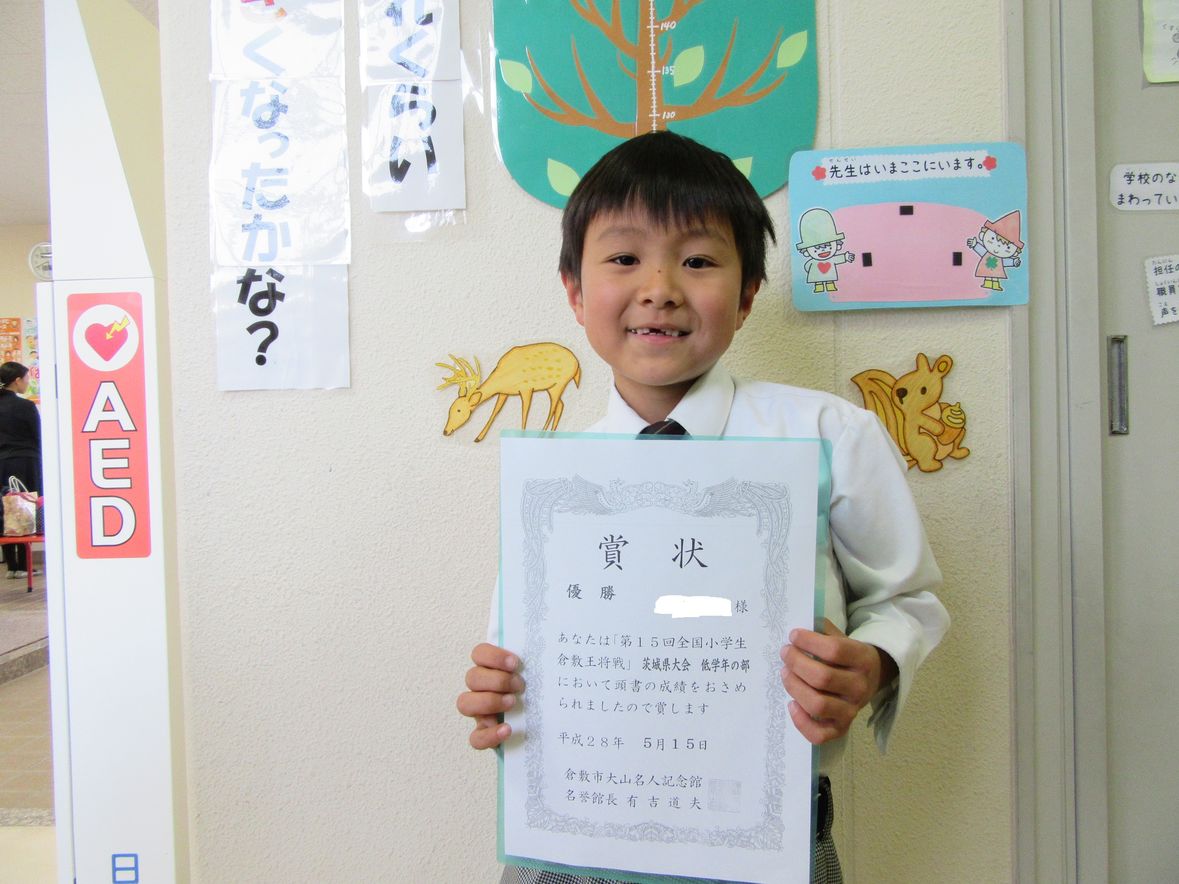 くなったかな?
くらい
140
135
130
先生はいまここにいます。
せんせい
学校のな
まわってい
担任の
職員
声を
AED
日
賞 状
優 勝
様
あなたは「第15回全国小学生
倉敷王将戦」 茨城県大会 低学年の部
において頭書の成績をおさめ
られましたので賞します
平成28年 5月15日
倉敷市大山名人記念館
名誉館長 有 吉 道 夫